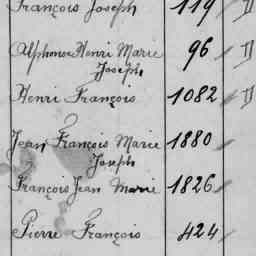 François Joseph 119
Alphonse Henri Marie 96
Joseph
Henri François 1082
Jean François Marie 1880
Joseph
François Jean Marie 1826
Pierre François 424